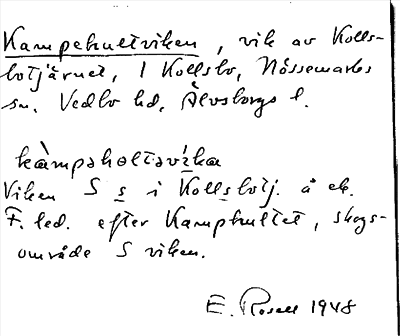 Kampekultviken, vik av Kolls-
botjärnet, 1 Kollsbo, Nössemarks
sn. Vedbo hd, Älvsborgs l.
kàmpəkoltəvìka
Viken S s i Kollsbotj. å ek.
F. led. efter Kampkultet, skogs-
område S viken.
E. Rosell 1948